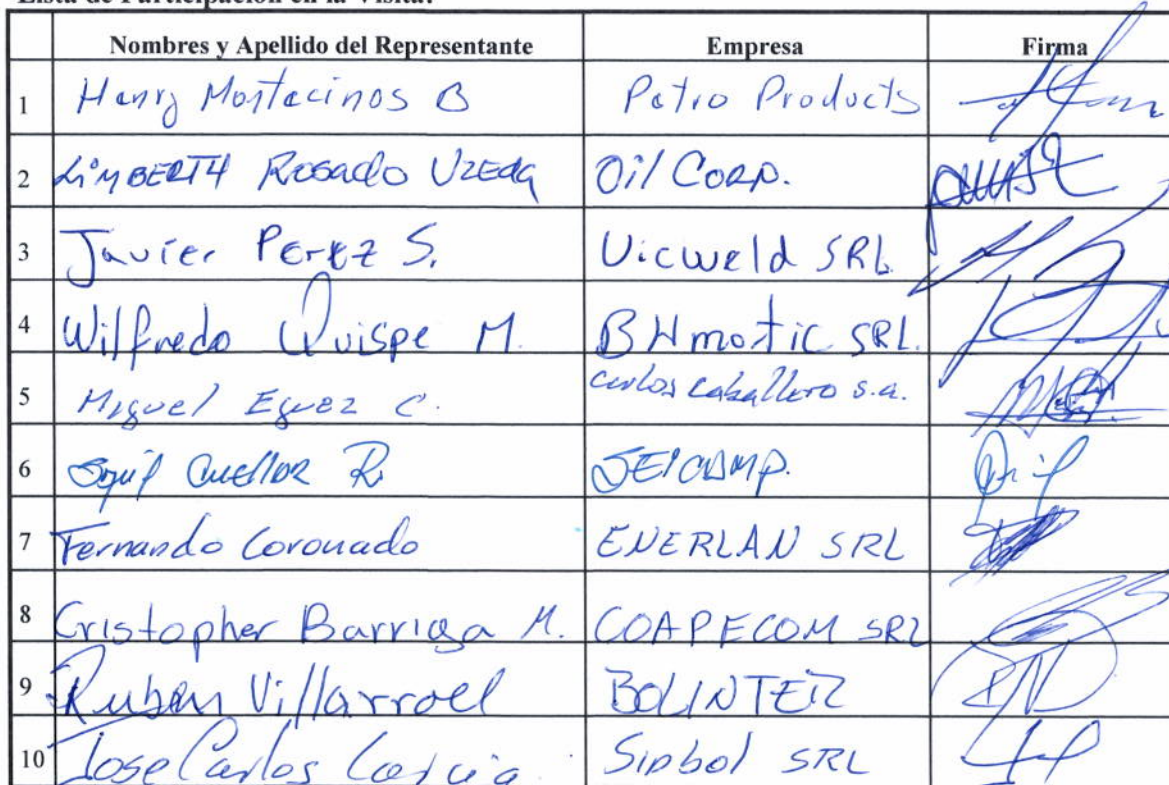 Lista de Participación en la Visita:
Nombres y Apellido del Representante Empresa Firma
1 Henry Montecinos B Petro Products
2 LIMBERTH Rosado UZEDA Oil CORP.
3 Javier Perez S. Vicweld SRL
4 Wilfredo Quispe M. BHmatic SRL.
5 Miguel Eguez C. carlos caballero s.a.
6 Cuellar R.
7 Fernando Coronado ENERLAN SRL
8 Cristopher Barriga M. COAPECOM SRL
9 Ruben Villarroel BOLINTER
10 Jose Carlos Garcia Sipbol SRL